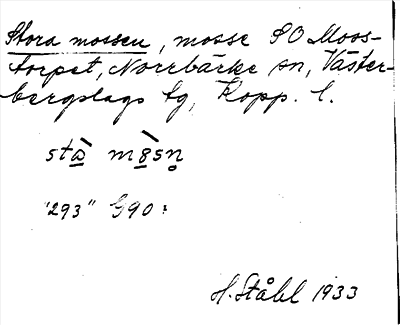 Stora mossen, mosse SO Moos-
torpet, Norrbärke sn, Väster-
bergslags tg, Kopp. l.
sta mosn
"293" G90:
H. Ståhl 1933